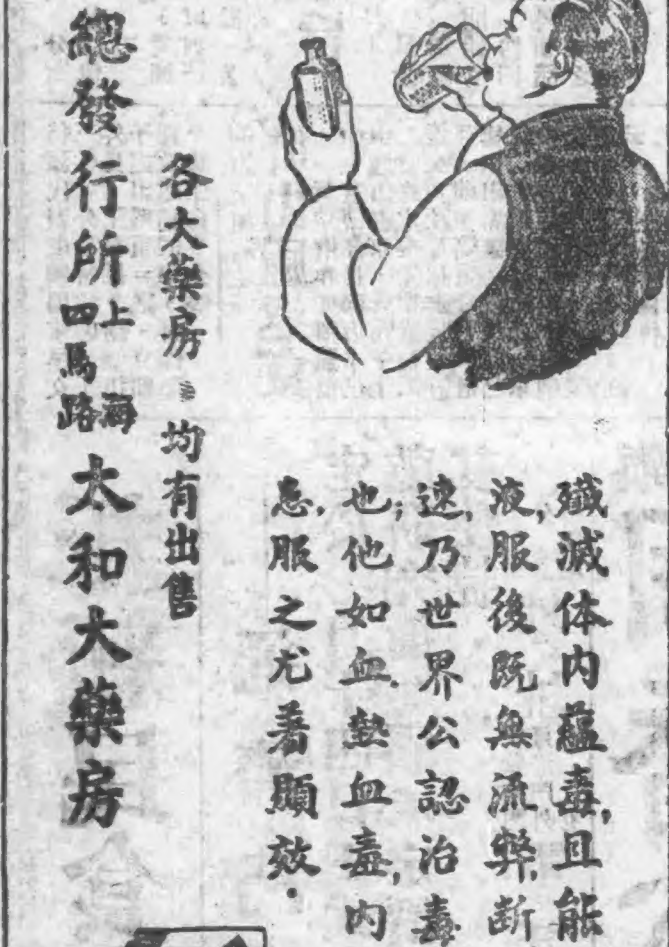 殲滅体内蘊毒,且能
液,服後既無流弊,斷
速,乃世界公認治毒
也;他如血熱血毒,内
患,服之尤著顯效.
各大藥房均有出售
總發行所上海四馬路太和大藥房